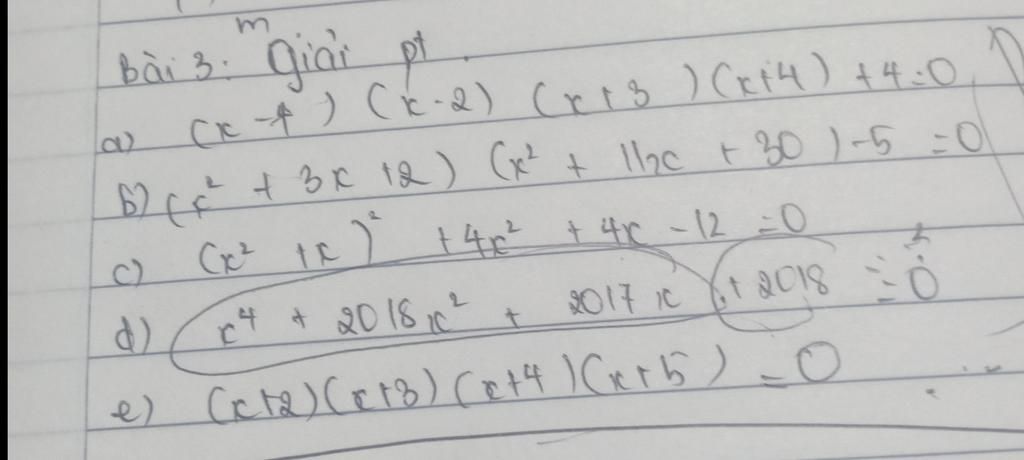 m
Bài 3: Giải pt.
a) (x-1)(x-2)(x+3)(x+4)+4=0
b) (x² + 3x +2) (x² + 11x + 30)-5 =0
c) (x² +x)² +4x² + 4x -12 =0
d) x⁴ + 2018x² + 2017x + 2018 = 0
e) (x+2)(x+3)(x+4)(x+5) = 0